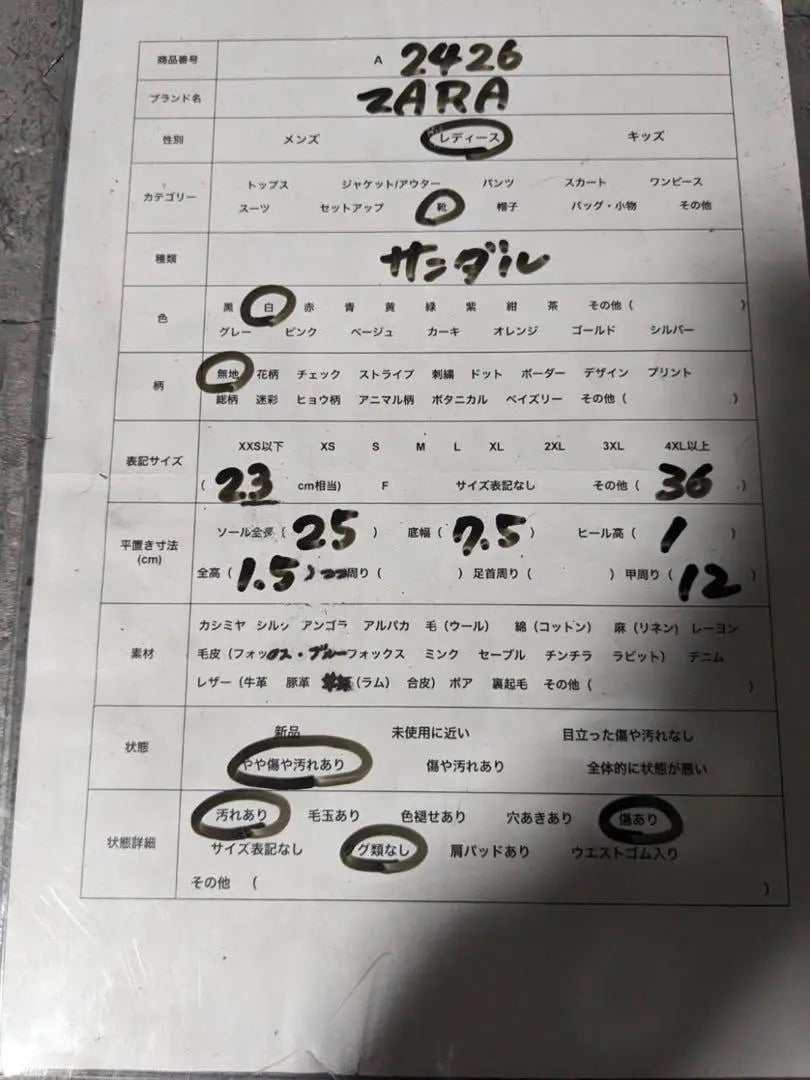 商品番号 A 2426
ブランド名 ZARA
性別 メンズ レディース キッズ
トップス ジャケット/アウター パンツ スカート ワンピース
カテゴリー
スーツ セットアップ 靴 帽子 バッグ・小物 その他
種類 サンダル
黒 白 赤 青 黄 緑 紫 紺 茶 その他 ( )
色
グレー ピンク ベージュ カーキ オレンジ ゴールド シルバー
無地 花柄 チェック ストライプ 刺繍 ドット ボーダー デザイン プリント
柄
総柄 迷彩 ヒョウ柄 アニマル柄 ボタニカル ペイズリー その他 ( )
XXS以下 XS S M L XL 2XL 3XL 4XL以上
表記サイズ
( 23 cm相当) F サイズ表記なし その他 ( 36 )
ソール全長 ( 25 ) 底幅 ( 7.5 ) ヒール高 ( 1 )
平置き寸法
(cm)
全高 ( 1.5 ) 周り ( ) 足首周り ( ) 甲周り ( 12 )
カシミヤ シルク アンゴラ アルパカ 毛 (ウール) 綿 (コットン) 麻 (リネン) レーヨン
素材
毛皮 (フォックス・ブルーフォックス ミンク セーブル チンチラ ラビット) デニム
レザー (牛革 豚革 (ラム) 合皮) ボア 裏起毛 その他 ( )
新品 未使用に近い 目立った傷や汚れなし
状態
やや傷や汚れあり 傷や汚れあり 全体的に状態が悪い
汚れあり 毛玉あり 色褪せあり 穴あきあり 傷あり
状態詳細
サイズ表記なし タグ類なし 肩パッドあり ウエストゴム入り
その他 ( )